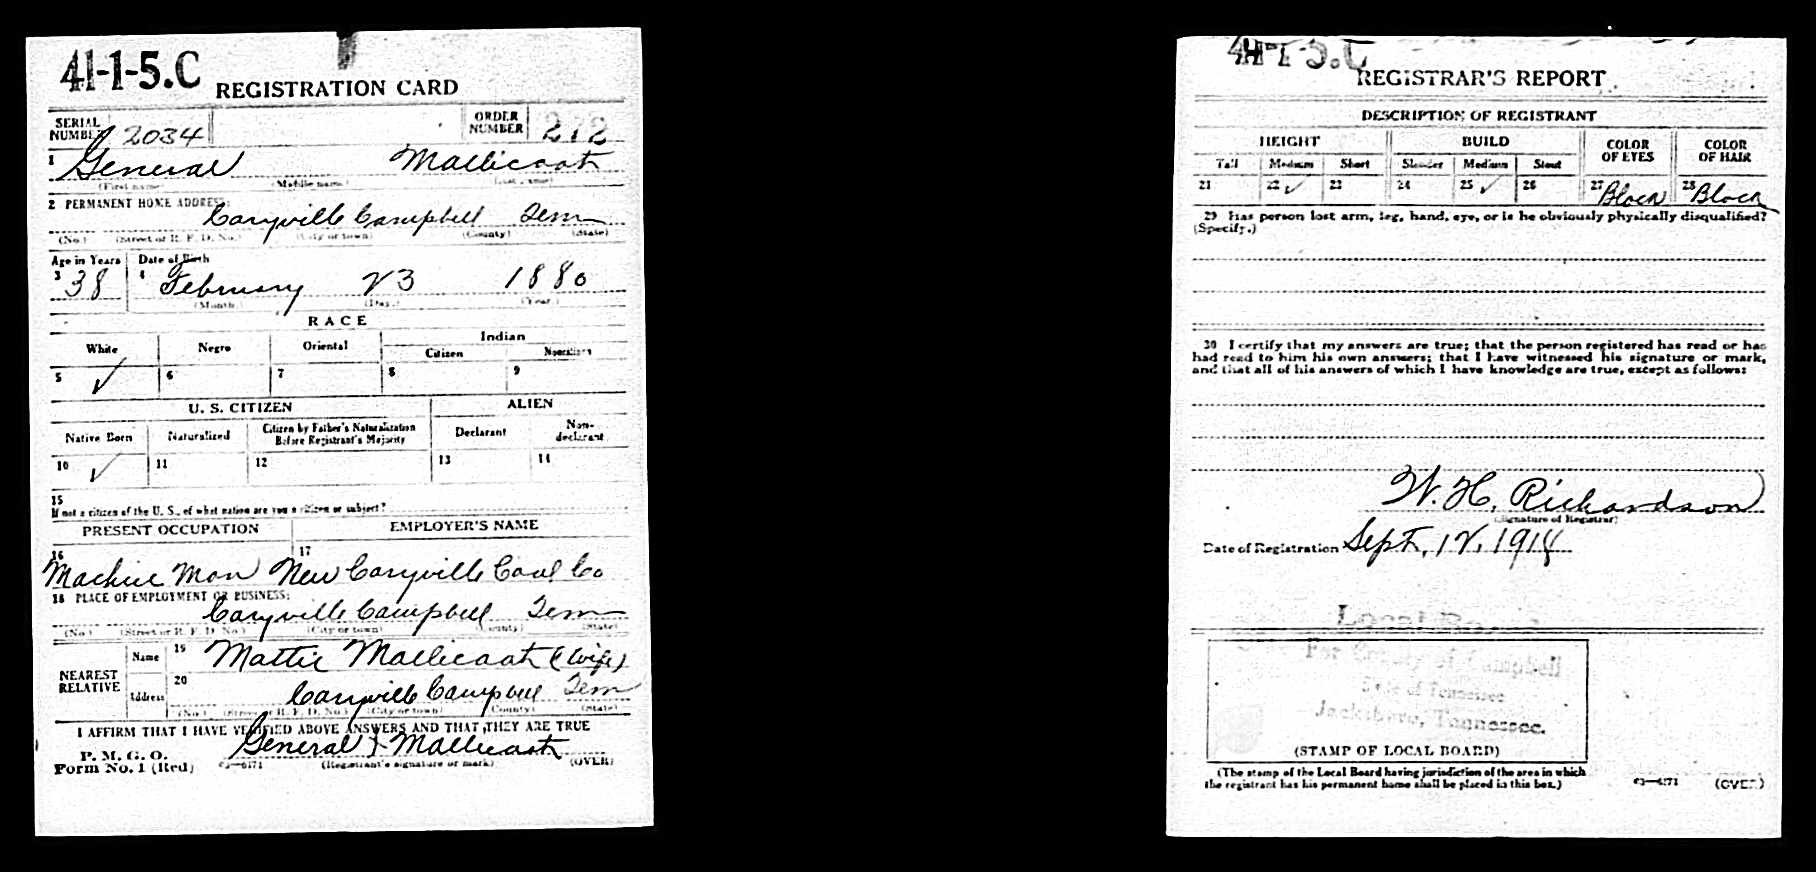 41-1-5.C
REGISTRATION CARD
SERIAL NUMBER 2034 ORDER NUMBER 272
1 General Mallicoat
(First name) (Middle name) (Last name)
2 PERMANENT HOME ADDRESS:
Caryville Campbell Tenn
(No.) (Street or R. F. D. No.) (City or town) (County) (State)
Age in Years Date of Birth
3 38 4 February 23 1880
(Month.) (Day.) (Year.)
RACE
White Negro Oriental Indian
Citizen Noncitizen
5 ✓ 6 7 8 9
U. S. CITIZEN ALIEN
Native Born Naturalized Citizen by Father's Naturalization Before Registrant's Majority Declarant Non-declarant
10 ✓ 11 12 13 14
15
If not a citizen of the U. S., of what nation are you a citizen or subject?
PRESENT OCCUPATION EMPLOYER'S NAME
16 17
Machine Man New Caryville Coal Co
18 PLACE OF EMPLOYMENT OR BUSINESS:
Caryville Campbell Tenn
(No.) (Street or R. F. D. No.) (City or town) (County) (State)
NEAREST RELATIVE Name 19 Mattie Mallicoat (wife)
Address 20 Caryville Campbell Tenn
(No.) (Street or R. F. D. No.) (City or town) (County) (State)
I AFFIRM THAT I HAVE VERIFIED ABOVE ANSWERS AND THAT THEY ARE TRUE
P. M. G. O.
Form No. 1 (Red) General Mallicoat
03—6171 (Registrant's signature or mark) (OVER)
41-1-5.C
REGISTRAR'S REPORT
DESCRIPTION OF REGISTRANT
HEIGHT BUILD COLOR OF EYES COLOR OF HAIR
Tall Medium Short Slender Medium Stout
21 22 ✓ 23 24 25 ✓ 26 27 Black 28 Black
29 Has person lost arm, leg, hand, eye, or is he obviously physically disqualified?
(Specify.)
30 I certify that my answers are true; that the person registered has read or has
had read to him his own answers; that I have witnessed his signature or mark,
and that all of his answers of which I have knowledge are true, except as follows:
W. H. Richardson
(Signature of Registrar)
Date of Registration Sept, 12, 1918
Local Board
For County of Campbell
State of Tennessee
Jacksboro, Tennessee.
(STAMP OF LOCAL BOARD)
(The stamp of the Local Board having jurisdiction of the area in which
the registrant has his permanent home shall be placed in this box.)
03—6171 (OVER)